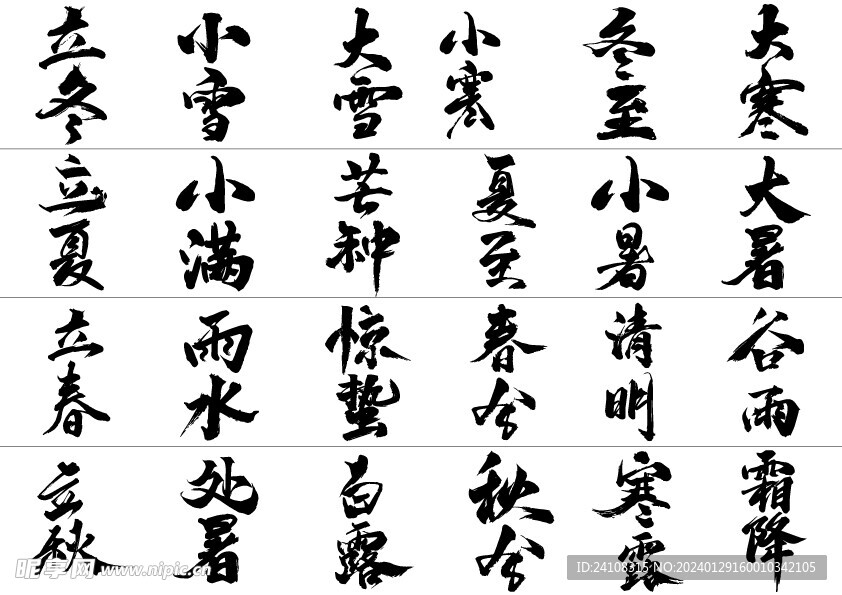 立冬 小雪 大雪 小寒 冬至 大寒
立夏 小满 芒种 夏至 小暑 大暑
立春 雨水 惊蛰 春分 清明 谷雨
立秋 处暑 白露 秋分 寒露 霜降
昵享网 www.nipic.cn
ID:24108315 NO:20240129160010342105